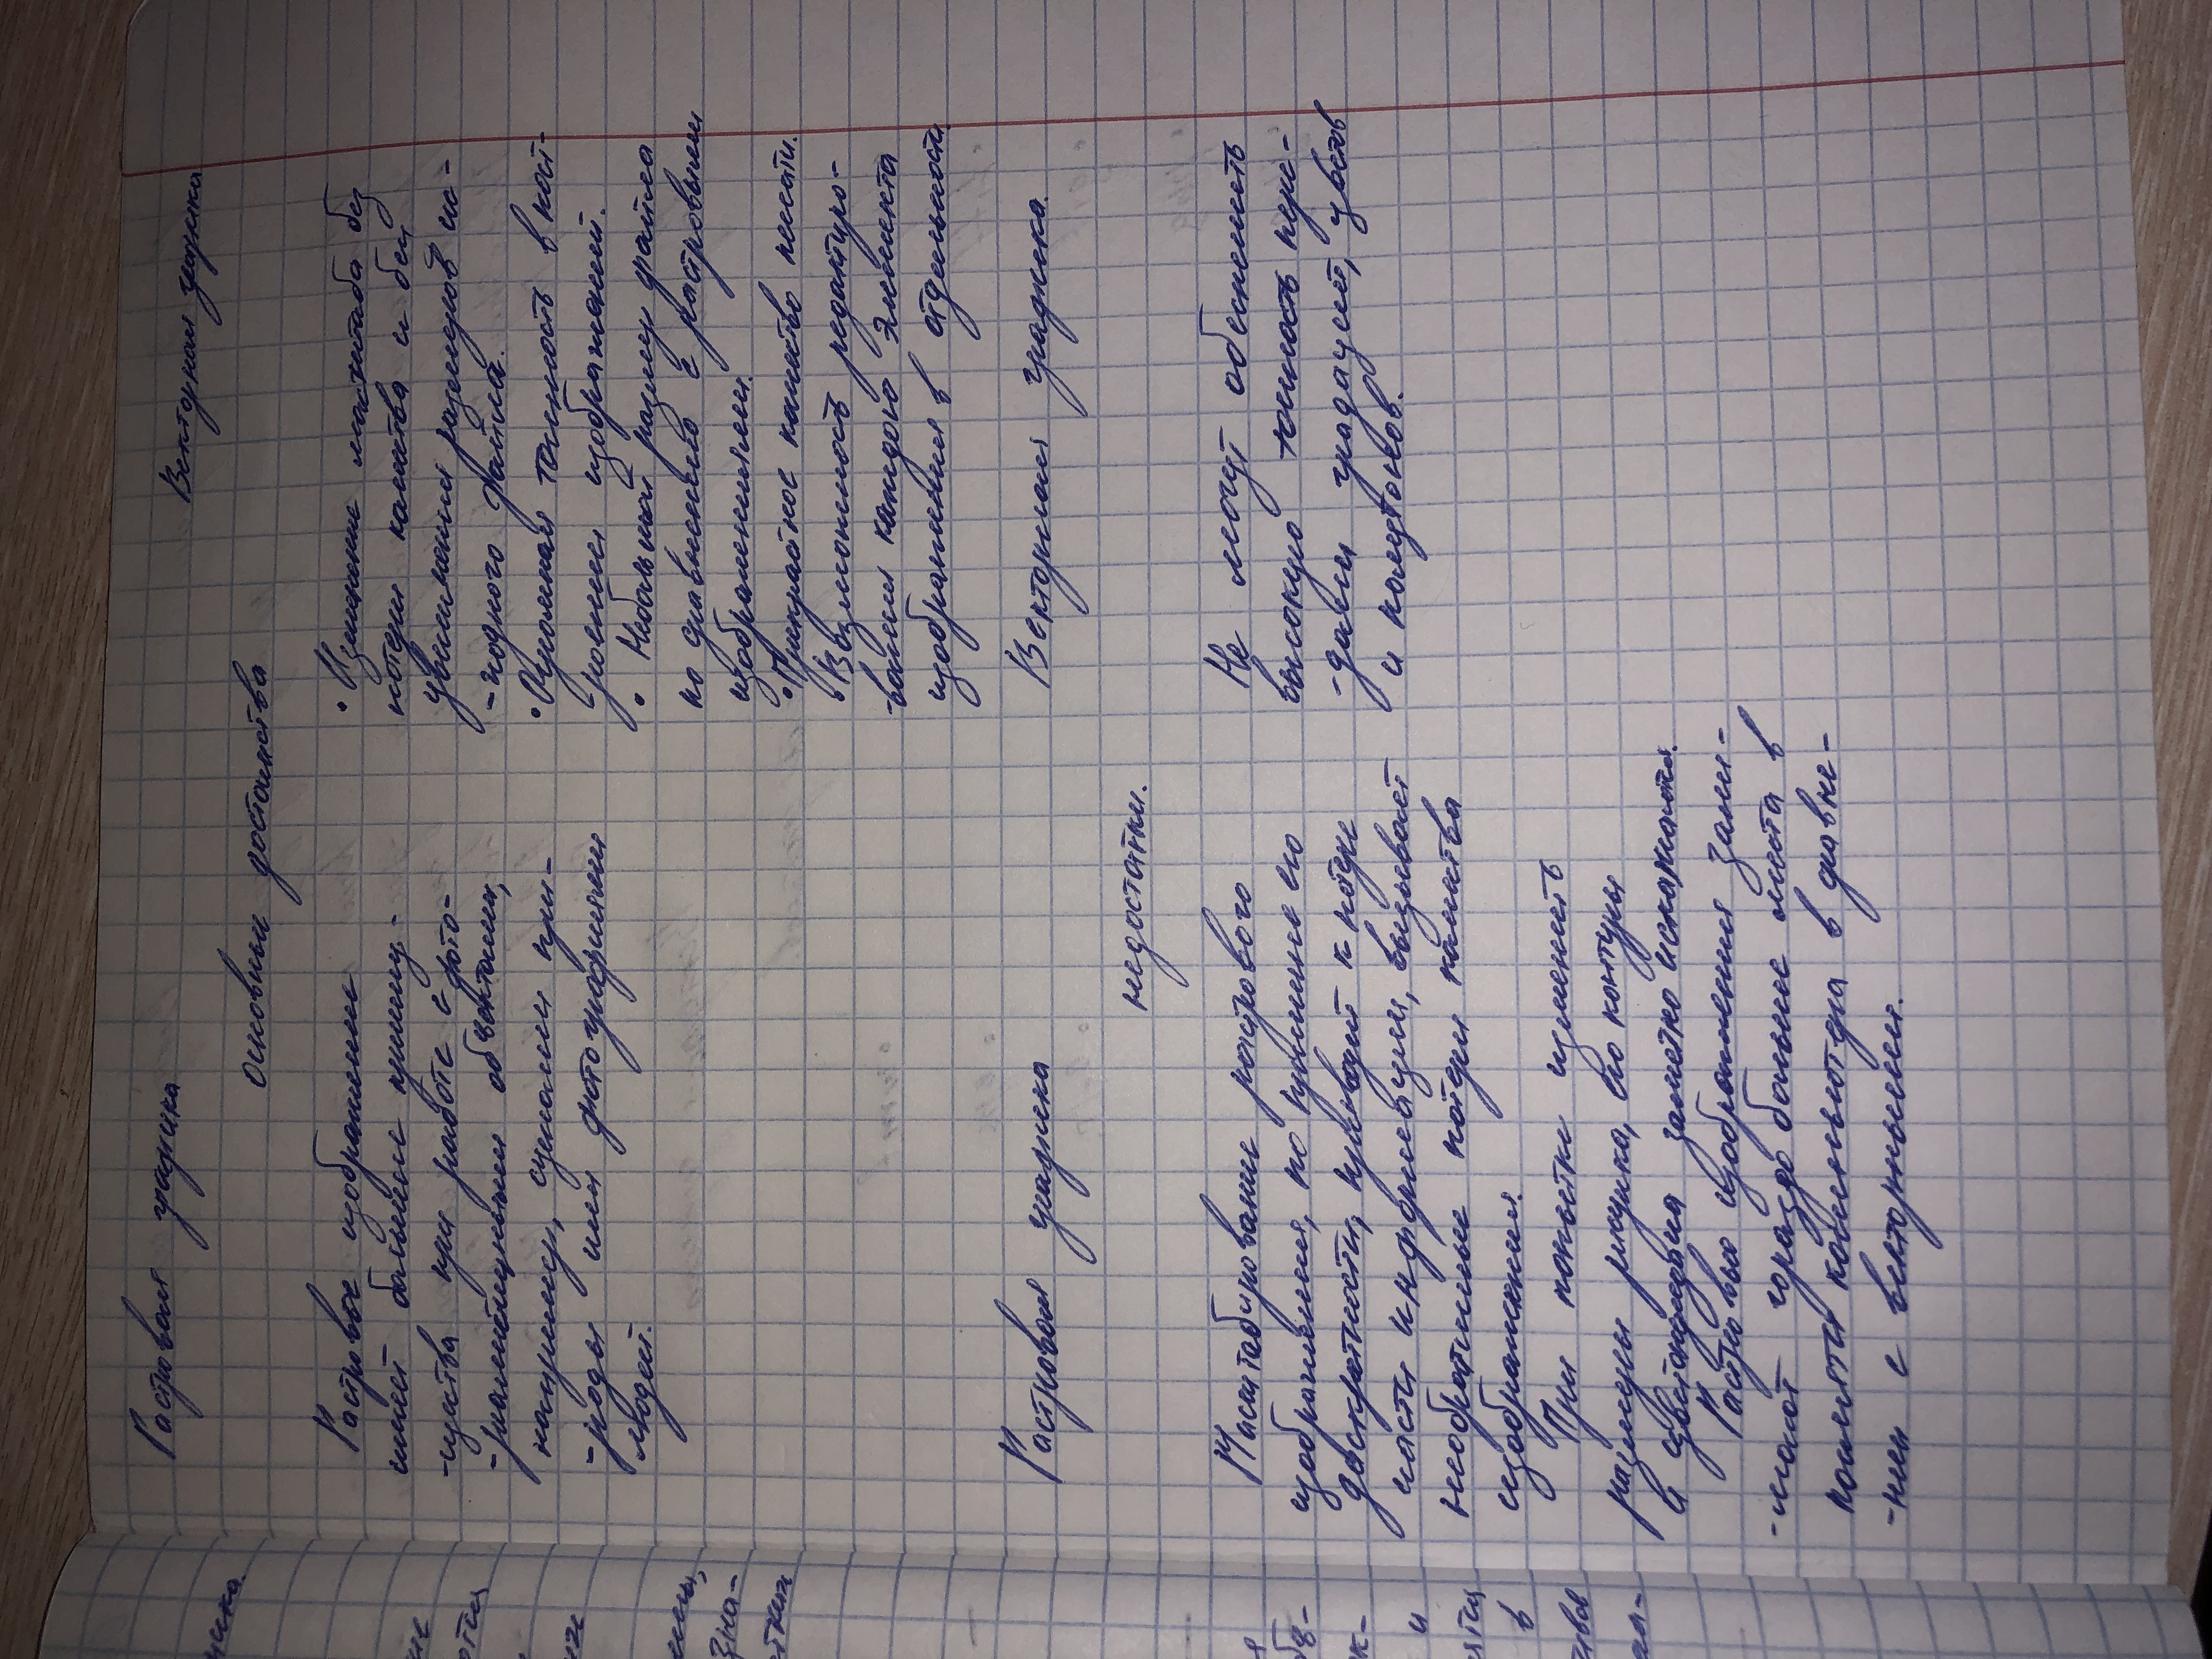 Растровая графика
Векторная графика
Основные достоинства
Растровое изображение
имеет большие преиму-
-щества при работе с фото-
-реалистичными объектами,
например, сценами при-
-роды или фотографиями
людей.
• Изменение масштаба без
потери качества и без
увеличения размеров ис-
-ходного файла.
• Огромная точность в пост-
роении изображений.
• Небольшой размер файла
по сравнению с растровыми
изображениями.
• Прекрасное качество печати.
• Возможность редактиро-
-вания каждого элемента
изображения в отдельности
Растровая графика
Векторная графика
недостатки.
Масштабирование растрового
изображения, по причине его
дискретности, приводит к потере
части информации, вызывает
необратимые потери качества
изображения.
При попытки изменить
размеры рисунка, его контуры
и цветопередача заметно искажаются.
Растровые изображения зани-
-мают гораздо больше места в
памяти компьютера в сравне-
-нии с векторными.
Не могут обеспечить
высокую точность пере-
-дачи градаций, цветов
и полутонов.